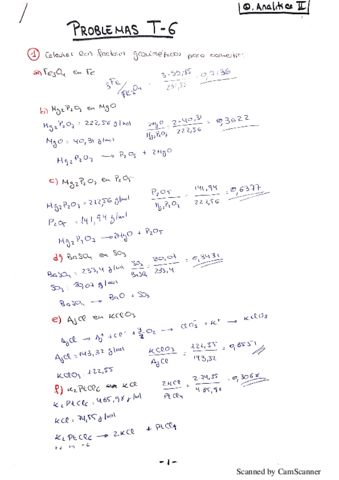 Q. Analítica II
PROBLEMAS T-6
① Calcular los factores gravimétricos para convertir:
a) Fe3O4 en Fe
3Fe / Fe3O4 = 3·55,85 / 231,55 = 0,7236
b) Mg2P2O7 en MgO
Mg2P2O7 = 222,56 g/mol
2MgO / Mg2P2O7 = 2·40,31 / 222,56 = 0,3622
MgO = 40,31 g/mol
Mg2P2O7 → P2O5 + 2MgO
c) Mg2P2O7 en P2O5
Mg2P2O7 = 222,56 g/mol
P2O5 / Mg2P2O7 = 141,94 / 222,56 = 0,6377
P2O5 = 141,94 g/mol
Mg2P2O7 → 2MgO + P2O5
d) BaSO4 en SO3
BaSO4 = 233,4 g/mol
SO3 / BaSO4 = 80,07 / 233,4 = 0,3431
SO3 = 80,07 g/mol
BaSO4 → BaO + SO3
e) AgCl en KClO3
AgCl = 143,32 g/mol
KClO3 / AgCl
143,32
f) K2PtCl6 en KCl
2KCl
K2PtCl6
KCl = 74,55 g/mol
K2PtCl6 → 2KCl + PtCl4
-1-
Scanned by CamScanner